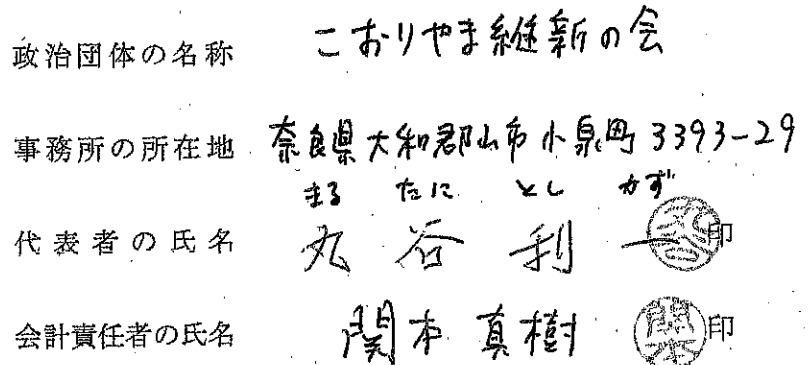 政治団体の名称 こおりやま継新の会
事務所の所在地 奈良県大和郡山市小泉町3393-29
まる たに とし かず
代表者の氏名 丸谷利一 印
会計責任者の氏名 関本真樹 印